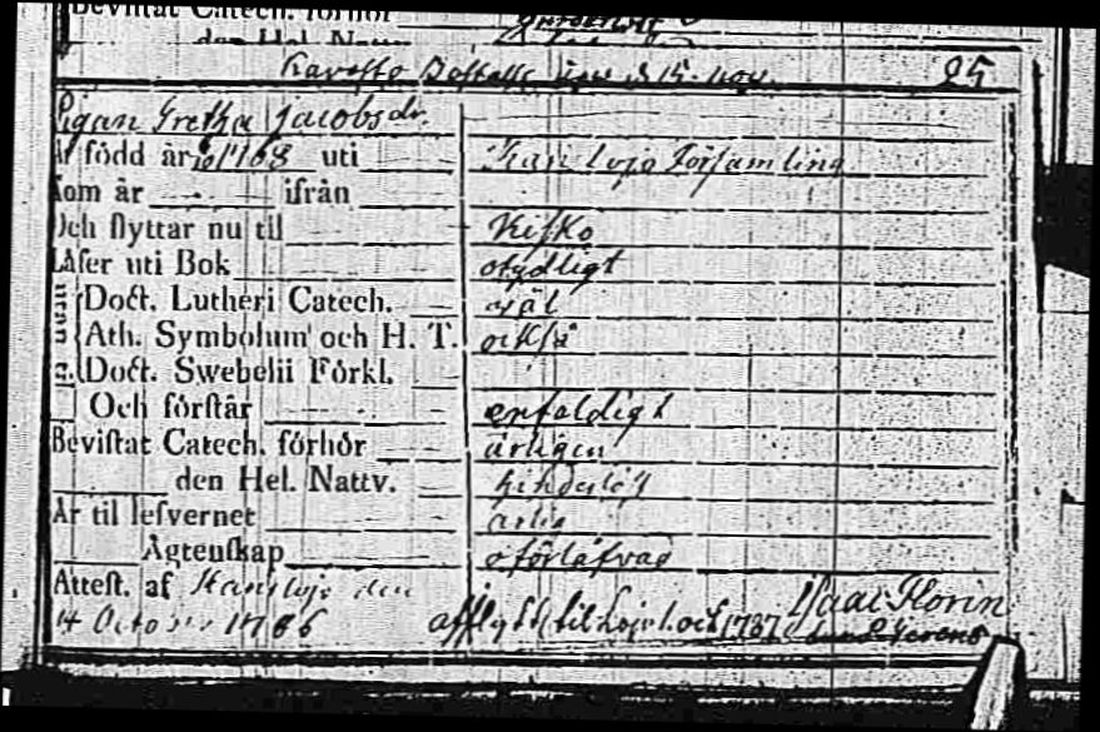 Bevistat Catech. förhör
den Hel. Nattv.
d 15. nov. 25
Pigan Gretha Jacobsdr.
Är född år 1768 uti Kari Lojo Församling
Kom år ifrån
Och flyttar nu til Kisko
Låser uti Bok otydligt
Doct. Lutheri Catech. väl
Ath. Symbolum och H. T. också
Doct. Swebelii Förkl.
Och förstår enfaldigt
Bevistat Catech. förhör årligen
den Hel. Nattv.
Är til lefvernet ärlig
Ägtenskap oförlåfvad
Attest. af Karislojo den Isaac Florin
14 October 1786 afflytt til Lojo 1. oct 1787